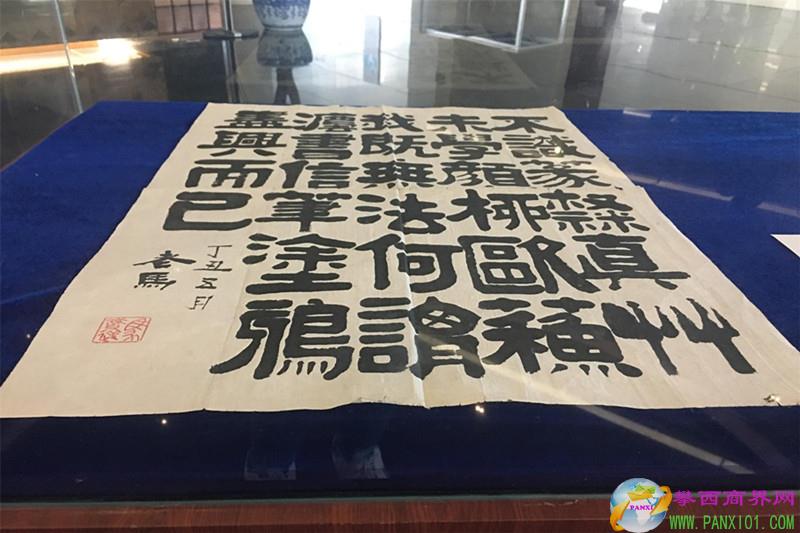 不識篆隸真艸
未學顏柳歐蘇
我既無法何謂
灋書信筆塗鴉
盡興而已
丁丑五月
馬
PANXI
攀西商界网
WWW.PANXI01.COM